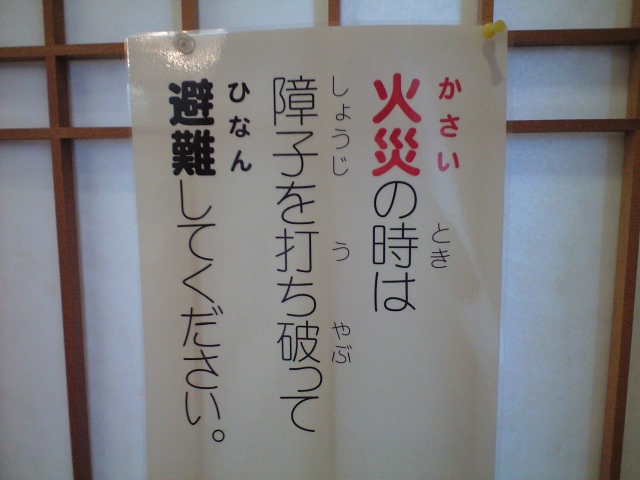 火災の時は
かさい とき
障子を打ち破って
しょうじ う やぶ
避難してください。
ひなん